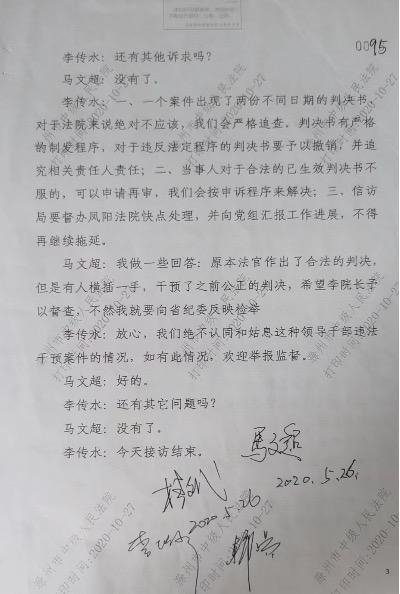 0095
李传水：还有其他诉求吗？
马文超：没有了。
李传水：一、一个案件出现了两份不同日期的判决书，
对于法院来说绝对不应该，我们会严格追查。判决书有严格
的制发程序，对于违反法定程序的判决书要予以撤销，并追
究相关责任人责任；二、当事人对于合法的已生效判决书不
服的，可以申请再审，我们会按申诉程序来解决；三、信访
局要督办凤阳法院快点处理，并向党组汇报工作进展，不得
再继续拖延。
马文超：我做一些回答：原本法官作出了合法的判决，
但是有人横插一手，干预了之前公正的判决，希望李院长予
以督查，不然我就要向省纪委反映检举
李传水：放心，我们绝不认同和姑息这种领导干部违法
干预案件的情况，如有此情况，欢迎举报监督。
马文超：好的。
李传水：还有其它问题吗？
马文超：没有了。
李传水：今天接访结束。
馬文超
2020.5.26.
2020.5.26
滁州市中级人民法院
打印时间:2020-10-27
3